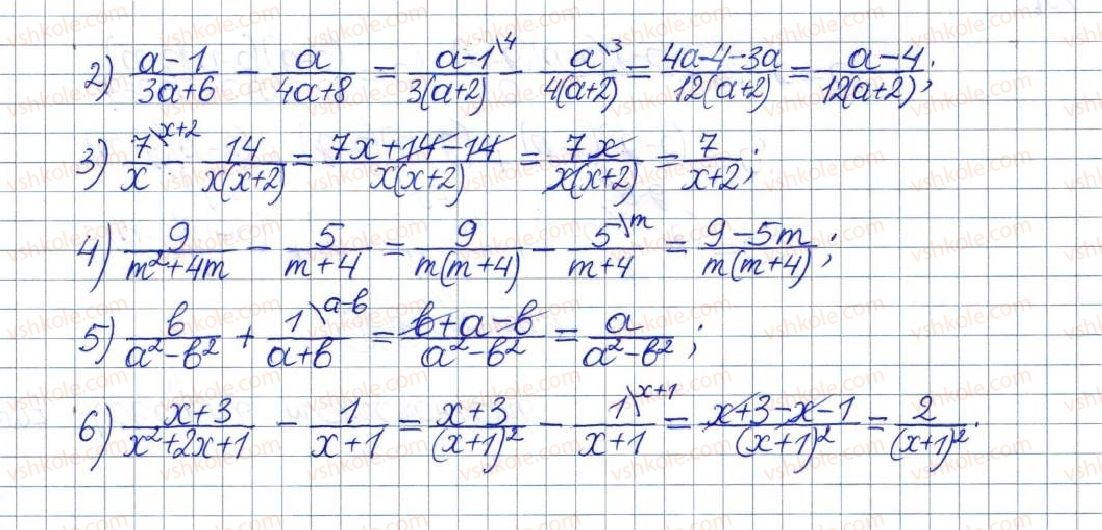 2) (a-1)/(3a+6) - a/(4a+8) = (a-1)\4/(3(a+2)) - a\3/(4(a+2)) = (4a-4-3a)/(12(a+2)) = (a-4)/(12(a+2));
3) 7\x+2/x - 14/(x(x+2)) = (7x+14-14)/(x(x+2)) = 7x/(x(x+2)) = 7/(x+2);
4) 9/(m²+4m) - 5/(m+4) = 9/(m(m+4)) - 5\m/(m+4) = (9-5m)/(m(m+4));
5) b/(a²-b²) + 1\a-b/(a+b) = (b+a-b)/(a²-b²) = a/(a²-b²);
6) (x+3)/(x²+2x+1) - 1/(x+1) = (x+3)/(x+1)² - 1\x+1/(x+1) = (x+3-x-1)/(x+1)² = 2/(x+1)².
vshkole.com